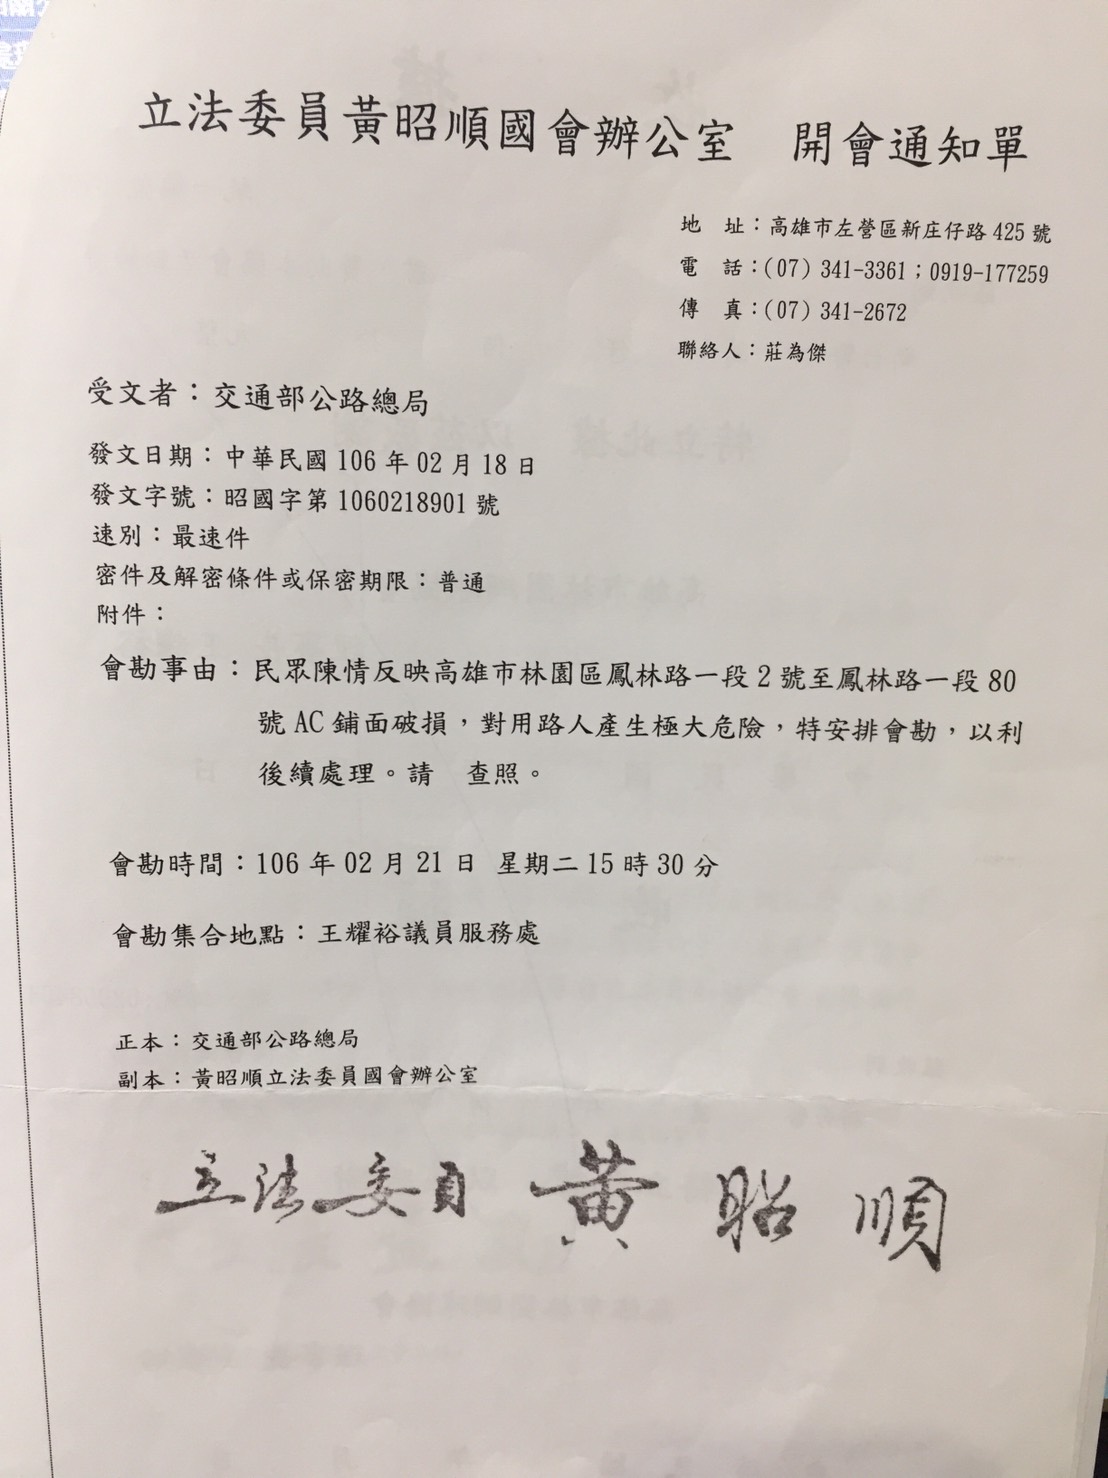 立法委員黃昭順國會辦公室　開會通知單
地　址：高雄市左營區新庄仔路 425 號
電　話：(07) 341-3361；0919-177259
傳　真：(07) 341-2672
聯絡人：莊為傑
受文者：交通部公路總局
發文日期：中華民國 106 年 02 月 18 日
發文字號：昭國字第 1060218901 號
速別：最速件
密件及解密條件或保密期限：普通
附件：
會勘事由：民眾陳情反映高雄市林園區鳳林路一段 2 號至鳳林路一段 80
號 AC 鋪面破損，對用路人產生極大危險，特安排會勘，以利
後續處理。請　查照。
會勘時間：106 年 02 月 21 日 星期二 15 時 30 分
會勘集合地點：王耀裕議員服務處
正本：交通部公路總局
副本：黃昭順立法委員國會辦公室
立法委員 黃昭順